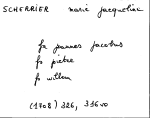 SCHERRIER marie jacqueline
fa joannes jacobus
fs pietre
fs willem
(1708) 326, 316vo